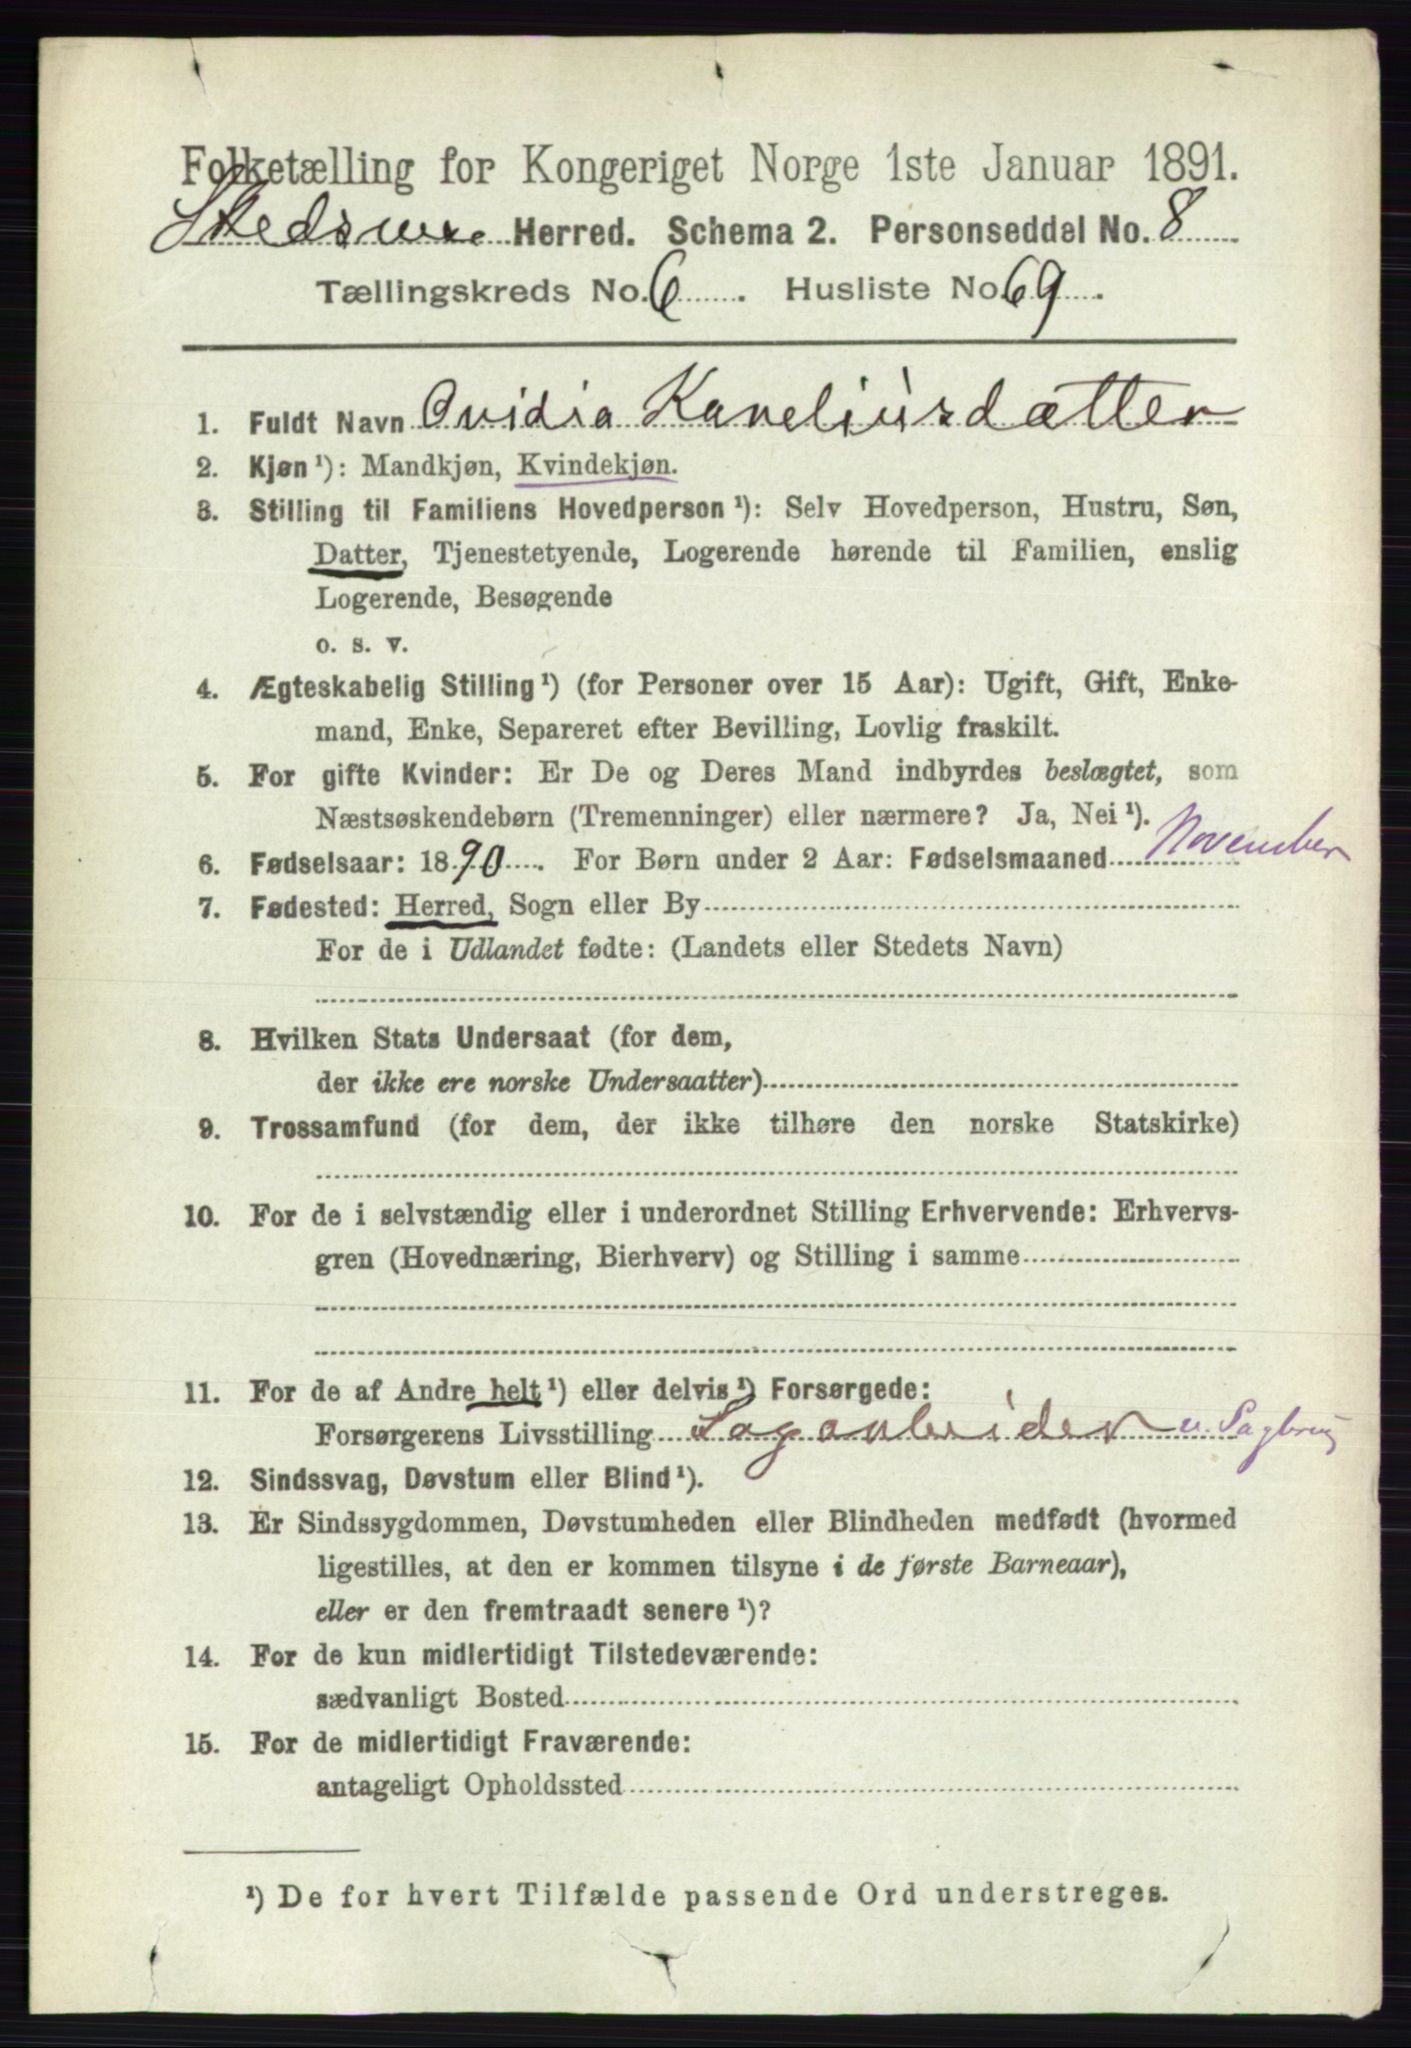 Folketælling for Kongeriget Norge 1ste Januar 1891.
Skedsmo Herred. Schema 2. Personseddel No. 8
Tællingskreds No. 6. Husliste No. 69.
1. Fuldt Navn Ovidia Kareliusdatter
2. Kjøn ¹): Mandkjøn, Kvindekjøn.
3. Stilling til Familiens Hovedperson ¹): Selv Hovedperson, Hustru, Søn,
Datter, Tjenestetyende, Logerende hørende til Familien, enslig
Logerende, Besøgende
o. s. v.
4. Ægteskabelig Stilling ¹) (for Personer over 15 Aar): Ugift, Gift, Enke-
mand, Enke, Separeret efter Bevilling, Lovlig fraskilt.
5. For gifte Kvinder: Er De og Deres Mand indbyrdes beslægtet, som
Næstsøskendebørn (Tremenninger) eller nærmere? Ja, Nei ¹).
6. Fødselsaar: 1890. For Børn under 2 Aar: Fødselsmaaned November
7. Fødested: Herred, Sogn eller By
For de i Udlandet fødte: (Landets eller Stedets Navn)
8. Hvilken Stats Undersaat (for dem,
der ikke ere norske Undersaatter)
9. Trossamfund (for dem, der ikke tilhøre den norske Statskirke)
10. For de i selvstændig eller i underordnet Stilling Erhvervende: Erhvervs-
gren (Hovednæring, Bierhverv) og Stilling i samme
11. For de af Andre helt ¹) eller delvis ¹) Forsørgede:
Forsørgerens Livsstilling Sagarbeider v. Sagbrug
12. Sindssvag, Døvstum eller Blind ¹).
13. Er Sindssygdommen, Døvstumheden eller Blindheden medfødt (hvormed
ligestilles, at den er kommen tilsyne i de første Barneaar),
eller er den fremtraadt senere ¹)?
14. For de kun midlertidigt Tilstedeværende:
sædvanligt Bosted
15. For de midlertidigt Fraværende:
antageligt Opholdssted
¹) De for hvert Tilfælde passende Ord understreges.